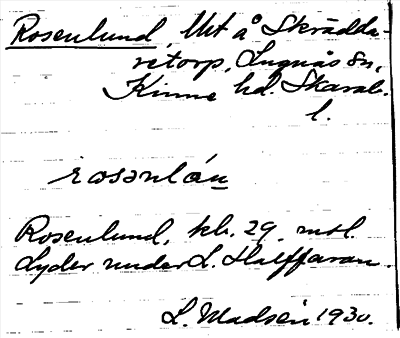 Rosenlund, Utt å Skrädda-
retorp, Lugnås sn,
Kinne hd. Skarab.
l.
rosənlún
Rosenlund, kbr. 29, mtl.
Lyder under L. Halffaran.
L. Madsén 1930.